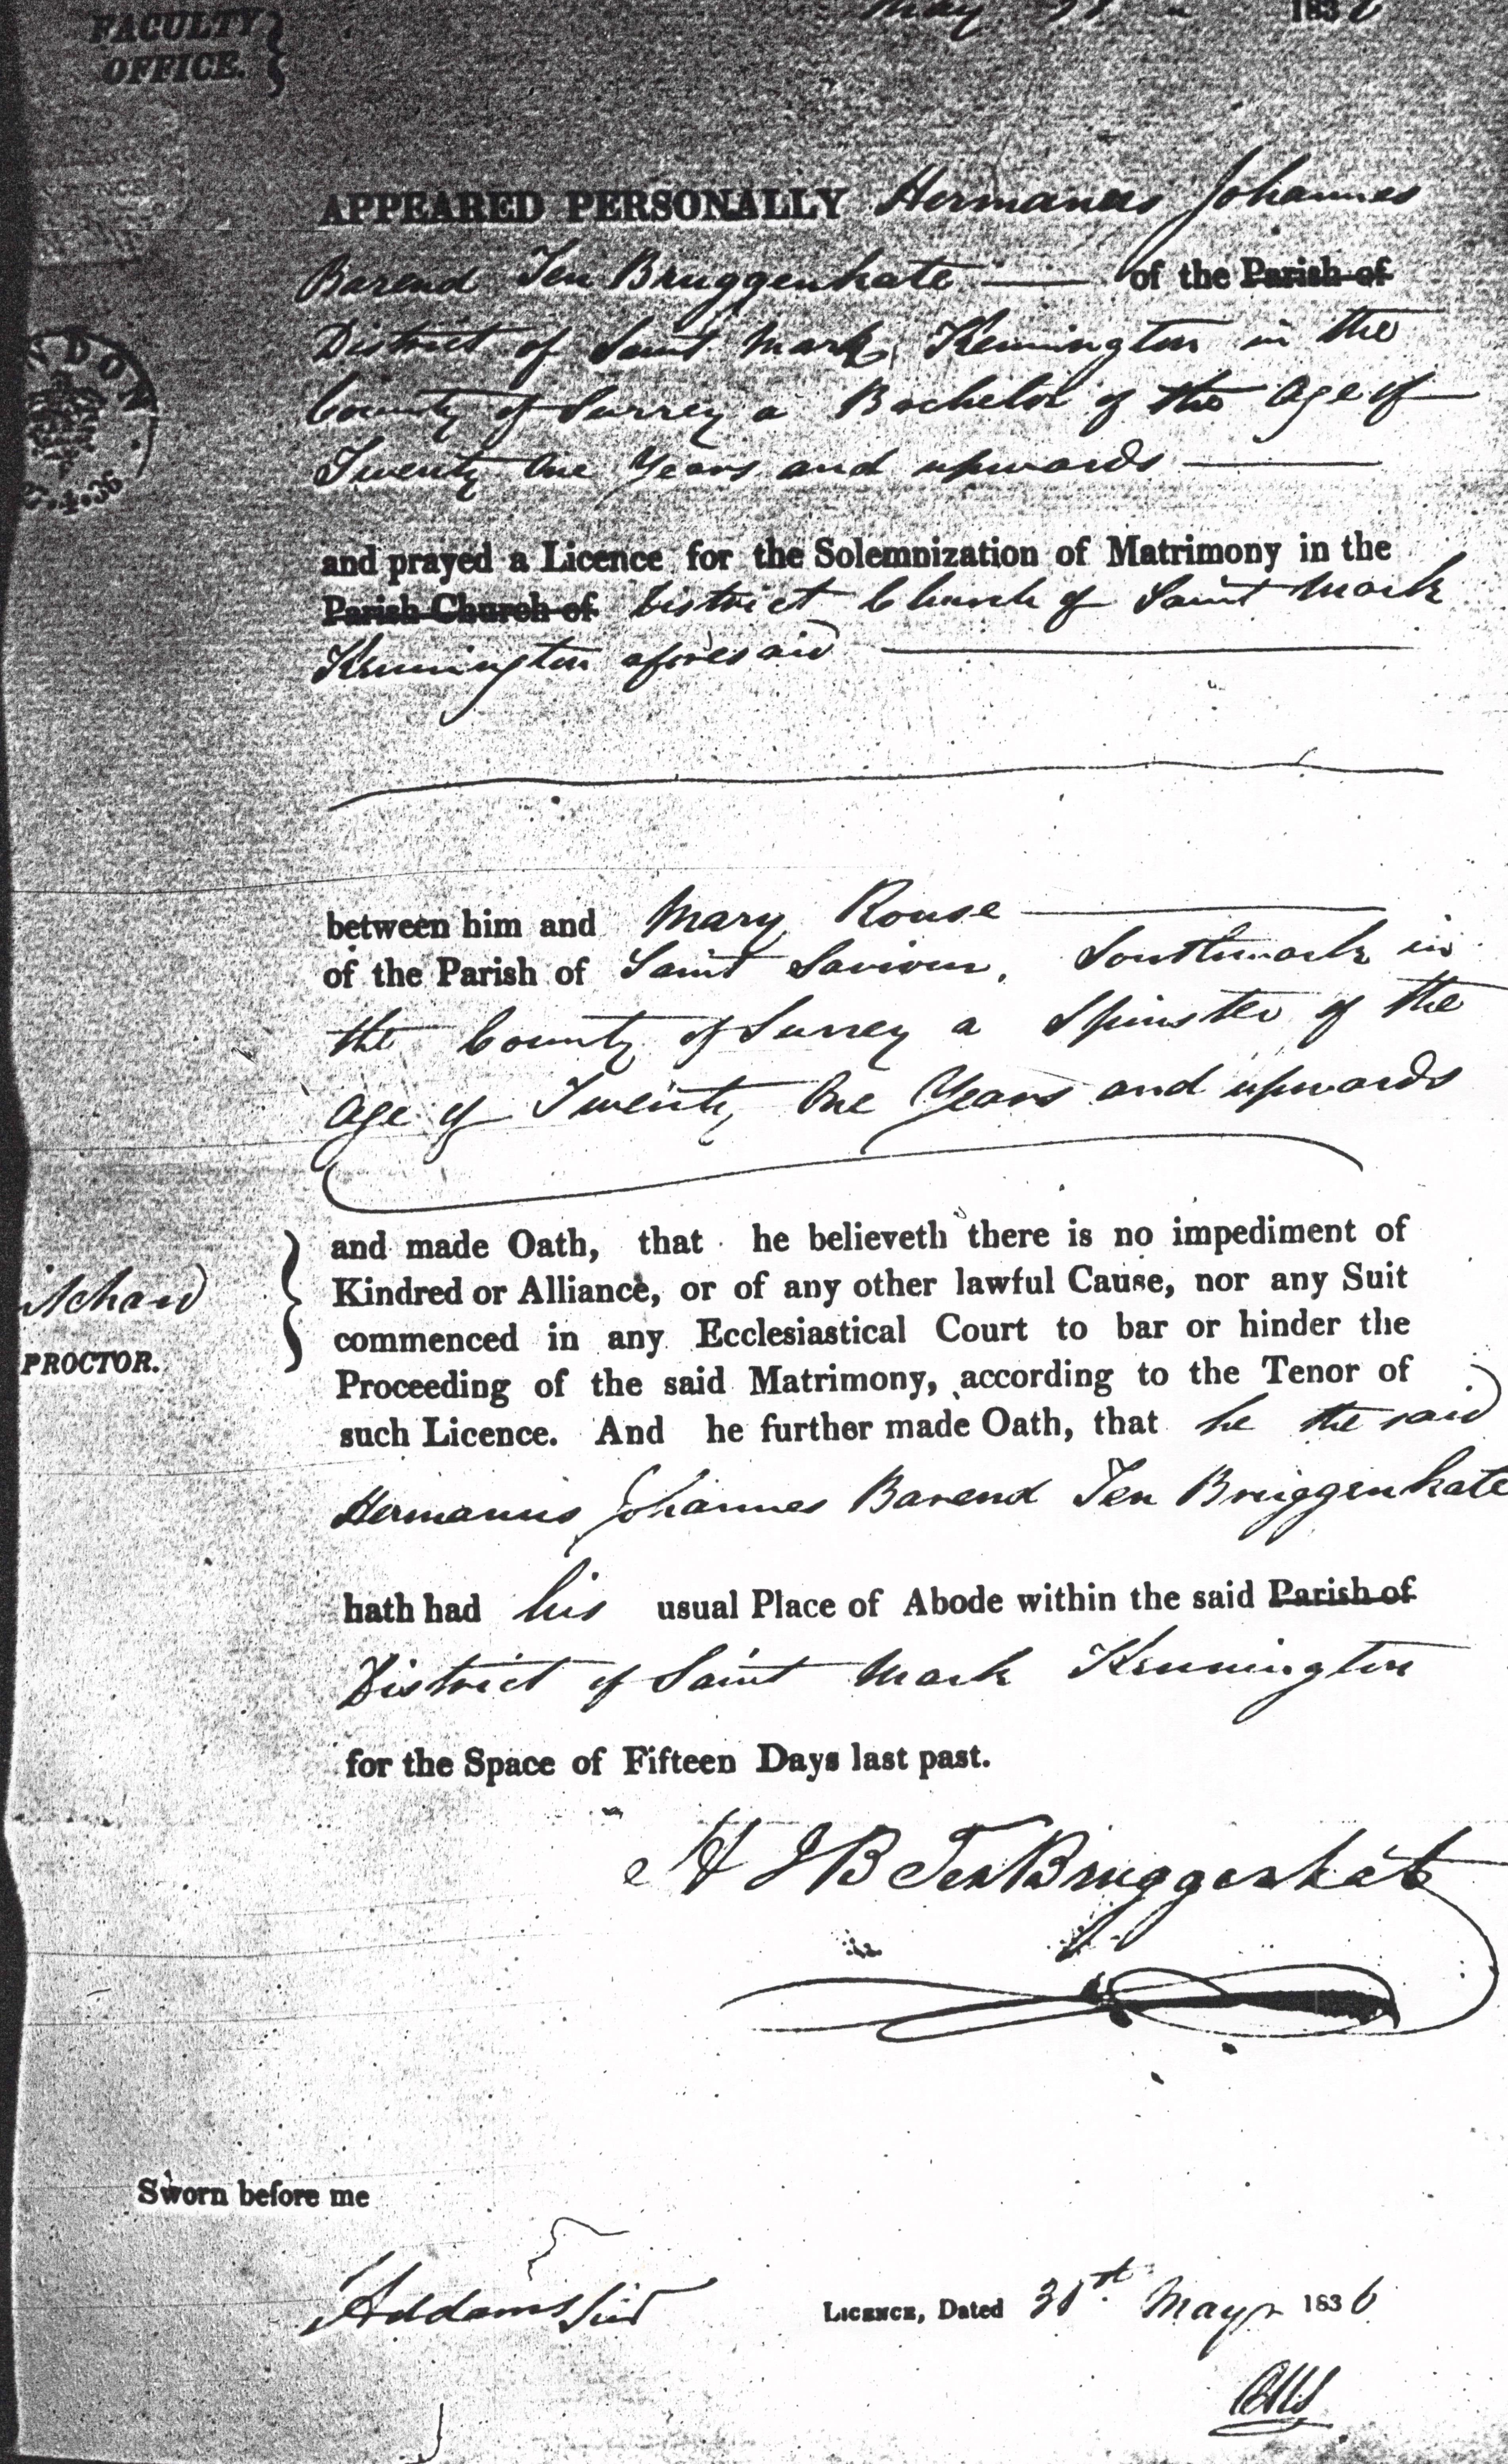 FACULTY
OFFICE.
May 183 6
APPEARED PERSONALLY Hermanus Johannes
Barend Ten Bruggenkate of the Parish of
District of Saint Mark, Kennington in the
County of Surrey a Bachelor of the Age of
Twenty One Years and upwards
and prayed a Licence for the Solemnization of Matrimony in the
Parish Church of District Church of Saint Mark
Kennington aforesaid
between him and Mary Rouse
of the Parish of Saint Saviour, Southwark in
the County of Surrey a Spinster of the
age of Twenty One Years and upwards
and made Oath, that he believeth there is no impediment of
Kindred or Alliance, or of any other lawful Cause, nor any Suit
commenced in any Ecclesiastical Court to bar or hinder the
PROCTOR.
Proceeding of the said Matrimony, according to the Tenor of
such Licence. And he further made Oath, that he the said
Hermanus Johannes Barend Ten Bruggenkate
hath had his usual Place of Abode within the said Parish of
District of Saint Mark Kennington
for the Space of Fifteen Days last past.
H J B Ten Bruggenkate
Sworn before me
Addams
LICENCE, Dated 31st. May 183 6